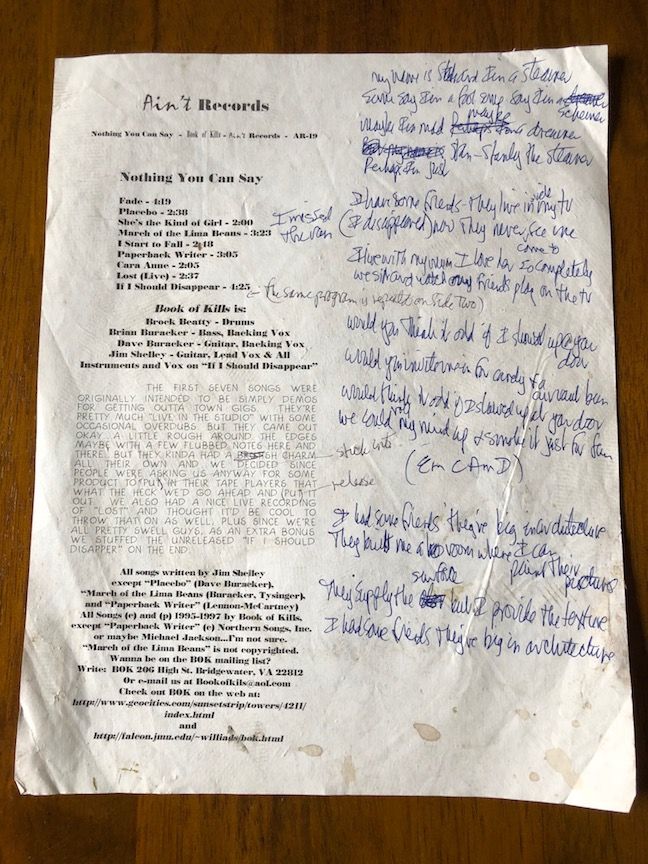 Ain't Records
Nothing You Can Say - Book of Kills - Ain't Records - AR-19
Nothing You Can Say
Fade - 4:19
Placebo - 2:38
She's the Kind of Girl - 2:00
March of the Lima Beans - 3:23
I Start to Fall - 2:48
Paperback Writer - 3:05
Cara Anne - 2:05
Lost (Live) - 2:37
If I Should Disappear - 4:25
(the same program is repeated on Side Two)
Book of Kills is:
Brock Beatty - Drums
Brian Buracker - Bass, Backing Vox
Dave Buracker - Guitar, Backing Vox
Jim Shelley - Guitar, Lead Vox & All
Instruments and Vox on "If I Should Disappear"
THE FIRST SEVEN SONGS WERE
ORIGINALLY INTENDED TO BE SIMPLY DEMOS
FOR GETTING OUTTA TOWN GIGS. THEY'RE
PRETTY MUCH "LIVE IN THE STUDIO" WITH SOME
OCCASIONAL OVERDUBS. BUT THEY CAME OUT
OKAY...A LITTLE ROUGH AROUND THE EDGES
MAYBE WITH A FEW FLUBBED NOTES HERE AND
THERE. BUT THEY KINDA HAD A CHARM
ALL THEIR OWN AND WE DECIDED SINCE
PEOPLE WERE ASKING US ANYWAY FOR SOME
PRODUCT TO PUT IN THEIR TAPE PLAYERS THAT
WHAT THE HECK WE'D GO AHEAD AND PUT IT
OUT. WE ALSO HAD A NICE LIVE RECORDING
OF "LOST" AND THOUGHT IT'D BE COOL TO
THROW THAT ON AS WELL, PLUS SINCE WE'RE
ALL PRETTY SWELL GUYS, AS AN EXTRA BONUS
WE STUFFED THE UNRELEASED "IF I SHOULD
DISAPPER" ON THE END.
stick into
release
All songs written by Jim Shelley
except "Placebo" (Dave Buracker),
"March of the Lima Beans" (Buracker, Tysinger),
and "Paperback Writer" (Lennon-McCartney)
All Songs (c) and (p) 1995-1997 by Book of Kills.
except "Paperback Writer" (c) Northern Songs, Inc.
or maybe Michael Jackson...I'm not sure.
"March of the Lima Beans" is not copyrighted.
Wanna be on the BOK mailing list?
Write: BOK 206 High St. Bridgewater, VA 22812
Or e-mail us at Bookofkils@aol.com
Check out BOK on the web at:
http://www.geocities.com/sunsetstrip/towers/4211/
index.html
and
http://falcon.jmu.edu/~williads/bok.html
my name is Stan and I'm a steamer
Some say I'm a fool some say I'm a schemer
maybe I'm mad maybe I'm a dreamer
Perhaps I'm just Stan - Stanly the steamer
I have some friends - They live inside my tv
I missed the van
(I disappeared) now They never see me
I live with my mum I love her so completely
we sit and watch my friends come to play on the tv
would you think it odd if I showed up @ your door
would you invite me in for candy &
would think it odd if I showed up at your door
we could my mind up & smoke it just for fun
(Em C Am D)
I had some friends they're big in architecture
They built me a room where I can paint their picture
They supply the surface but I provide the texture
I had some friends they're big in architecture